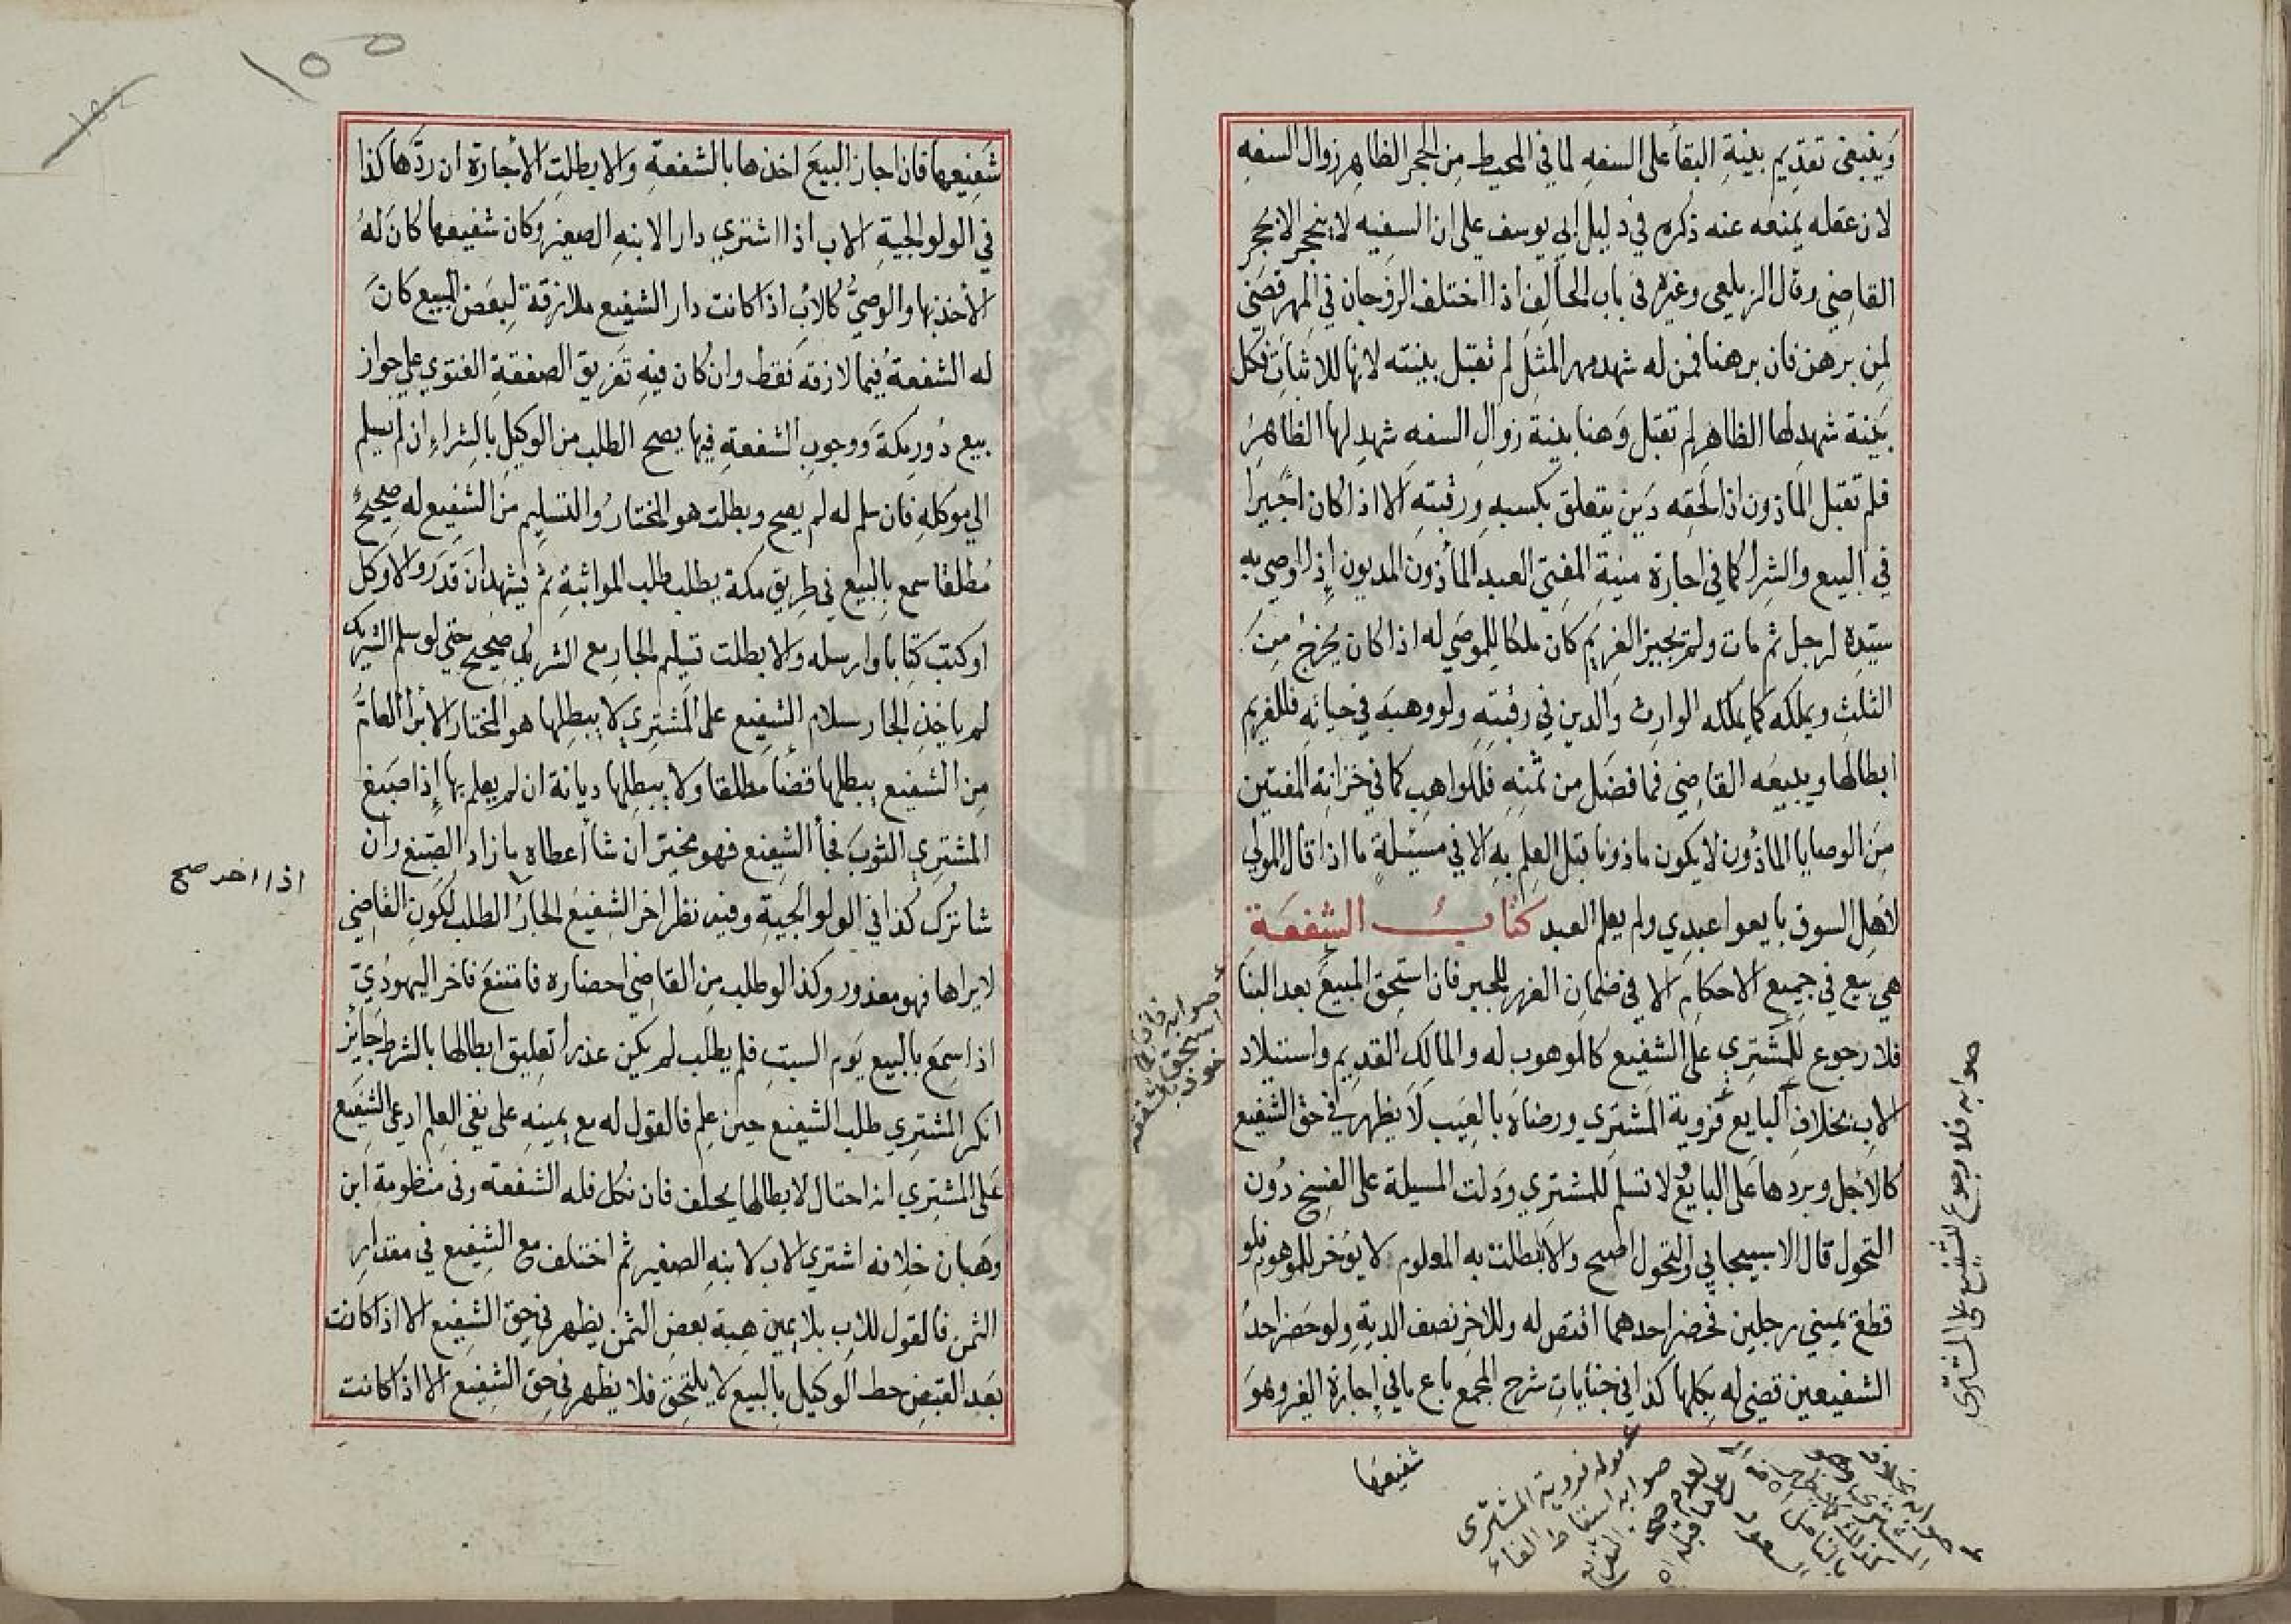 وَينبغى تقدِيم بينةِ البقأ على السفهِ لما في المحيط مِن الحجر الظاهِر زوال السفهِ
لان عقله يمنعه عنه ذكره في دليل ابي يوسف على ان السفيه لا ينحجر الا بحجر
القاضِي وقال الزيلعى وغيره في باب التحالف اذا اختلف الزوجان في المهر قضى
لمِن برهن فان برهنا فمن له شهد مهر المثل لم تقبل بينته لانها للاثبات فكل
بَينة شهد لها الظاهِر لم تقبل وَهنا بينة زوالِ السفه شهدِ لها الظاهِرُ
فلم تقبل الماذون اذا لحقه دَين يتعلق بكسبهِ ورقبتهِ الا اذا كان اجِيرا
في البيع والشِرا كما في اجارة منية المفتي العبد المأذون المديون إذا اوصي به
سيّدِه لرجل ثم مات ولم يجيز الغريم كان ملكا للموصَي له اذا كان يخرجُ مِنَ
الثلثِ ويملكه كما يملكه الوارث والدين في رقبتهِ ولو وهبَه في حياتهِ فللغريم
ابطالها ويبيعَه القاضي فما فضَل من ثمنهِ فللواهِب كما في خزانة المفتين
مِن الوصايا الماذُون لا يكون ماذونا قبل العِلم بهِ الا في مسئلةٍ ما اذا قال المولي
لأهِل السوق بايعوا عبدِي ولم يعلم العبد كتابُ الشفعَة
هي بيع في جمِيع الاحكامِ الا في ضمانِ الغرر للجبر فان استحِق المبيعُ بعد البنا
فلا رجوع للِمشترِي على الشفيع كالموهوب له والمالك القدِيم واستيلاد
الابِ بخلافِ البايع فرؤية المشترِي ورضاه بالعيب لا يظهر في حق الشفيع
كالاجل وبردها على البايع لا تسلم للمشترِي ودلت المسيلة على الفسِخ دُون
التحول قال الاسبيجابي والتحول اصَح والا بطلت به المعلوم لا يؤخر للموهوم فلو
قطع يميني رجلين فحضر احدهما اقتص له وللاخر نصف الديةِ ولو حَضر احدُ
الشفيعين قضِي له بكلها كذا في جنايات شرح المجمع باع ما في إجارة الغير وهوَ
شفيعها
صوابه فان استحق المبيع بالشفعه
صوابه فلا رجوع للشفيع على المشترى
قوله فروية المشترى
صوابه اسقاط الفاء
شَفِيعها فان اجاز البيعَ اخذها بالشفعةِ والا بطلتِ الأجارة ان ردَّها كذا
في الولوالجيةِ الاب اذا اشترِي دارا لابنهِ الصغير وكان شفيعها كان لهُ
الأخذ بها والوصيُّ كالابَ اذا كانت دار الشفيع ملازقة لبعَض المبيع كان
له الشفعةُ فيما لازقه فقط وان كان فيهِ تفريق الصفقةِ الفتوي على جواز
بيع دُور مكةَ ووجوب الشفعةِ فيها يصح الطلب من الوكيل بالشِراءِ ان لم يسلم
الي موكلهِ فان سلم له لم يصح وبطلت هو المختارُ والتسليم مِن الشفِيع له صحيحٌ
مُطلقا سمع بالبيع في طريق مكة يطلب طلب المواثبةِ ثم يشهد ان قدَر والا وكل
او كتب كتابا وارسله والا بطلت تسليم الجار مع الشريك صحِيح حتي لو سلم الشريك
لم ياخذِ الجار سلام الشفِيع على المشترِي لا يبطِلها هو المختار الابرأ العامّ
مِن الشفيع يبطلها قضأ مطلقا ولا يبطِلها ديانة ان لم يعلم بها إذا صَبغ
المشترِي الثوبَ فجأ الشفِيع فهو مخير ان شأ اعطاه ما زاد الصّبغ وان
شا ترك كذا في الولوالجيةِ وفيه نظر اخر الشفِيع الجارُ الطلب لكونِ القاضِي
لا يراها فهو معذور وكذا لو طلب مِن القاضِي احضاره فامتنعَ فاخر اليهودِيّ
اذا سمِعَ بالبيع يَوم السبتِ فلم يطلب لم يكن عذرا تعليق ابطالها بالشرط جَائز
انكر المشترِي طلب الشفيع حِين علِم فالقول له مع يمِينهِ على نفي العِلم ادعي الشفيع
على المشترِي انه احتال لابطالها يحلف فان نكل فله الشفعة وفي منظومةِ ابن
وهَبان خِلافه اشترِي الاب لابنهِ الصغير ثم اختلف مع الشفيع في مقدارِ
الثمنِ فالقول للابِ بلا يمِين هِبة بعض الثمن يظهر في حِق الشفِيع الا اذا كانت
بَعد القبضِ حط الوكيل بالبيع لا يلتحِق فلا يظهر في حِق الشفِيع الا اذا كانت
اذا اخر صح
١٥٥